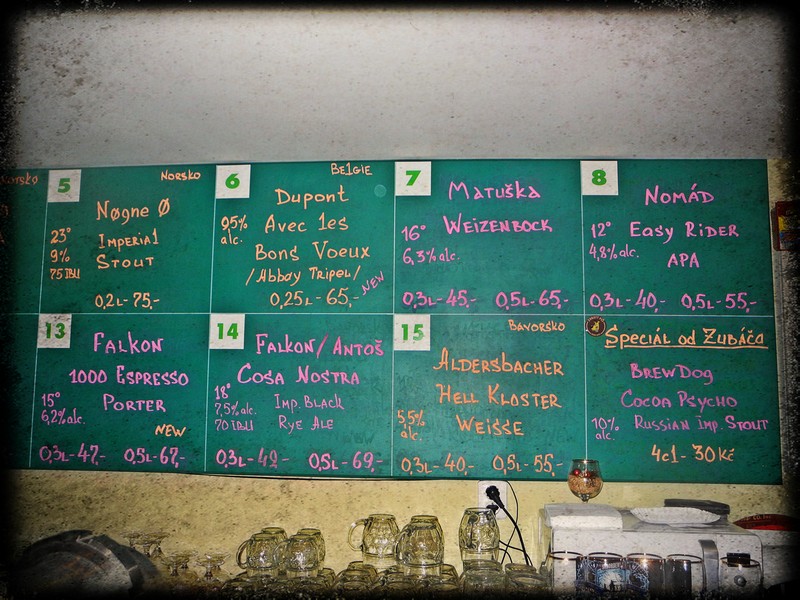 5
NORSKO
Nøgne Ø
23°
9%
75 IBU
IMPERIAL
STOUT
0,2L-75,-
6
BELGIE
Dupont
9,5%
alc.
Avec les
Bons Voeux
/Abbay Tripel/
NEW
0,25L-65,-
7
MATUŠKA
16°
WEIZENBOCK
6,3% alc.
0,3L-45,- 0,5L-65,-
8
NOMÁD
12° EASY RIDER
4,8% alc.
APA
0,3L-40,- 0,5L-55,-
13
FALKON
1000 ESPRESSO
15°
PORTER
6,2% alc.
NEW
0,3L-47,- 0,5L-67,-
14
FALKON/ANTOŠ
COSA NOSTRA
18°
7,5% alc.
70 IBU
IMP. BLACK
RYE ALE
0,3L-49,- 0,5L-69,-
15
BAVORSKO
ALDERSBACHER
HELL KLOSTER
5,5%
alc.
WEISSE
0,3L-40,- 0,5L-55,-
SPECIÁL OD ZUBÁČA
BREWDOG
COCOA PSYCHO
10%
alc.
RUSSIAN IMP. STOUT
4cl-30Kč